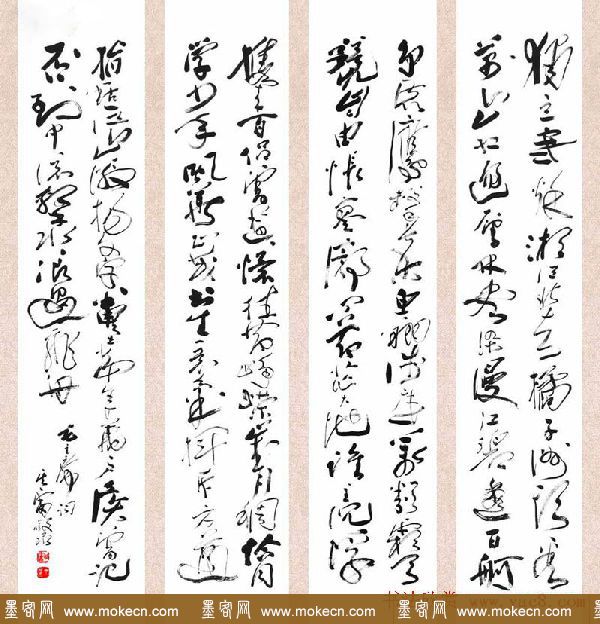 独立寒秋湘江北去橘子洲头看
万山红遍层林尽染漫江碧透百舸
争流鹰击长空鱼翔浅底万类霜天
竞自由怅寥廓问苍茫大地谁主沉浮
携来百侣曾游忆往昔峥嵘岁月稠恰同
学少年风华正茂书生意气挥斥方遒
指点江山激扬文字粪土当年万户侯曾记
否到中流击水浪遏飞舟
毛主席词
书法欣赏 www.yac8.com
墨客网 www.mokecn.com 墨客网 www.mokecn.com 墨客网 www.mokecn.com